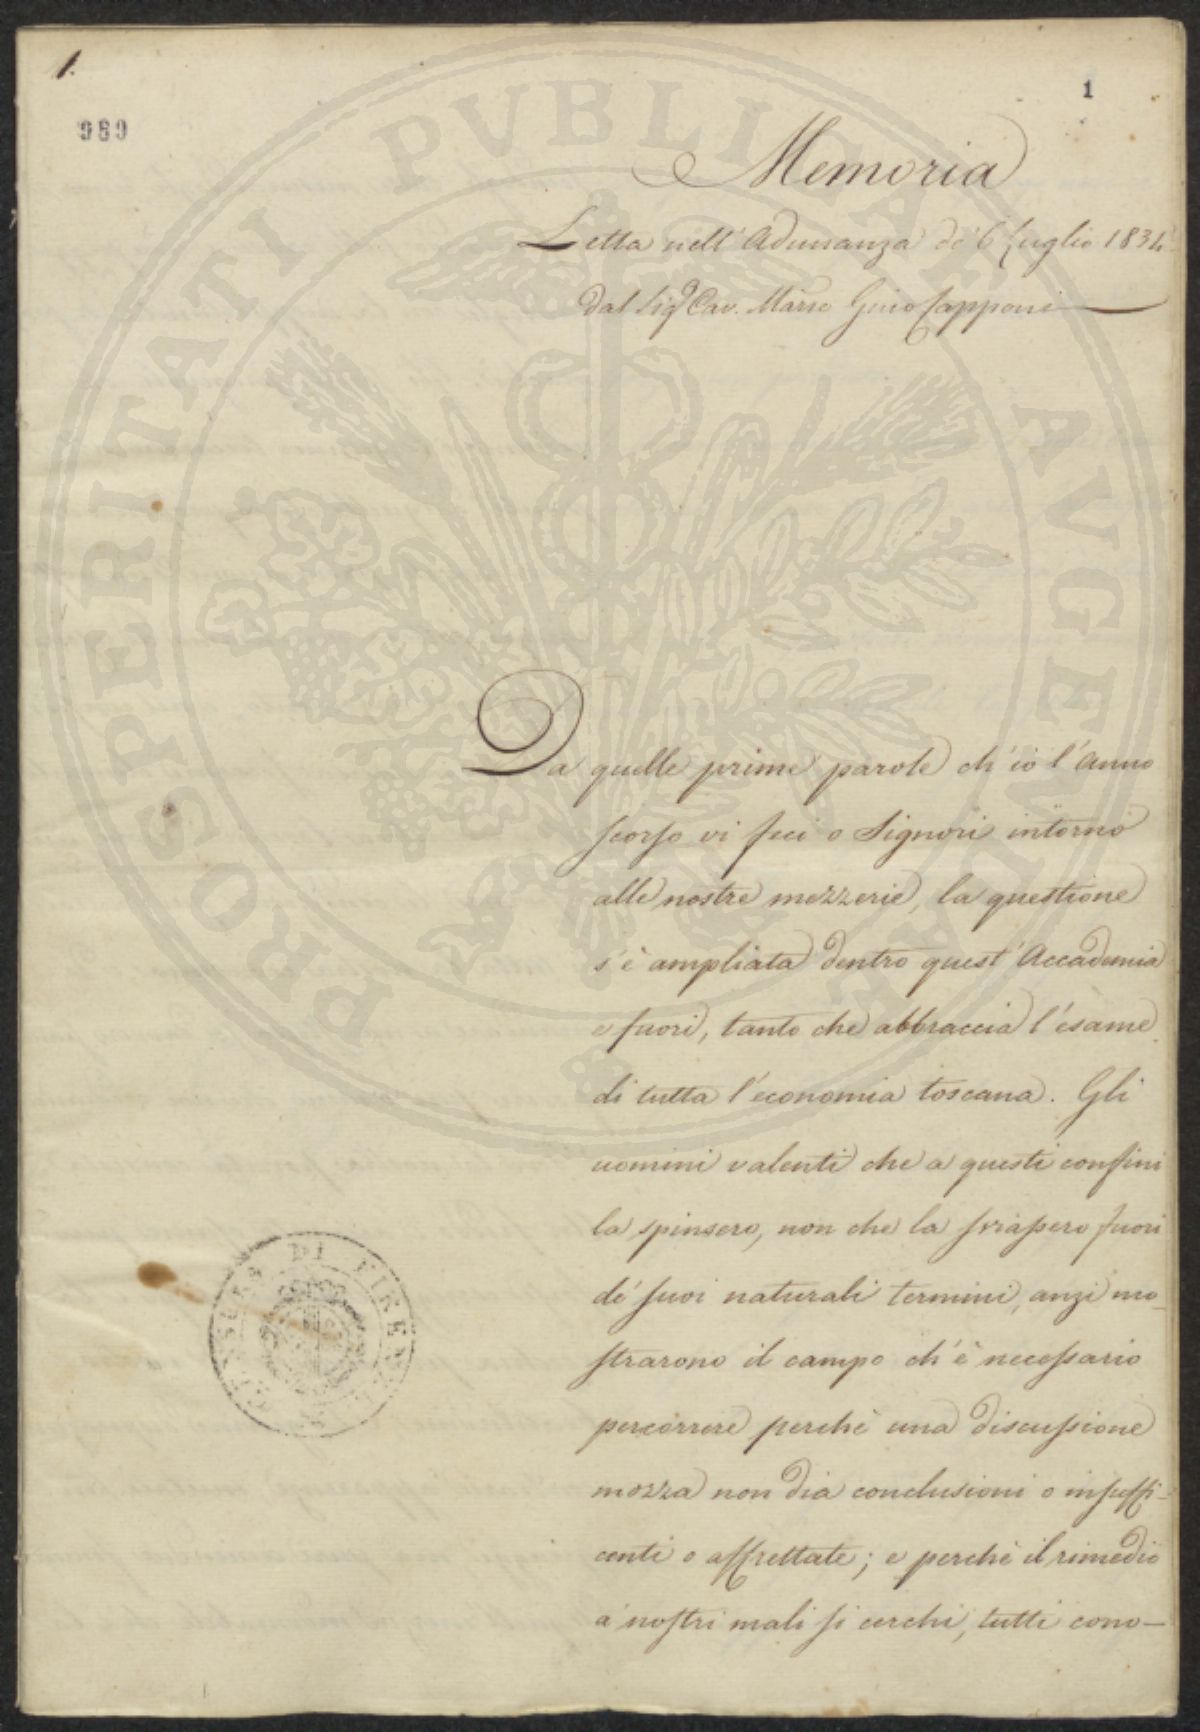 1.
1
989
Memoria
Letta nell' Adunanza de' 6 Luglio 1834
dal Sigr Cav. Marse Gino Capponi
Da quelle prime parole ch' io l' Anno
scorso vi feci o Signori intorno
alle nostre mezzerie, la questione
s' è ampliata dentro quest' Accademia
e fuori, tanto che abbraccia l' esame
di tutta l' economia toscana. Gli
uomini valenti che a questi confini
la spinsero, non che la traessero fuori
de' suoi naturali termini, anzi mo-
strarono il campo ch' è necessario
percorrere perchè una discussione
mozza non dia conclusioni o insuffi-
centi o affrettate; e perchè il rimedio
a' nostri mali si cerchi, tutti cono-
PROSPERITATI PVBLICAE AVGENDAE
DI FIRENZE